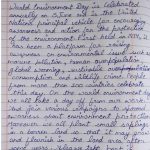 World Environment Day is celebrated
annually on 5 June and is the United
Nations' principal vehicle for encouraging
awareness and action for the protection
of the environment. First held in 1974, it
has been a platform for raising
awareness on environmental issues such as
marine pollution, human overpopulation,
global warming, sustainable
consumption and wildlife crime. People
from more than 100 countries celebrate
this day. On the world environment day
we all take a day off from our work
and join various campaigns to spread
awareness about environment protection.
Moreover, we all plant small saplings
in a barren land so that it may grow
and flourish in the land area after
some years. Please take part in